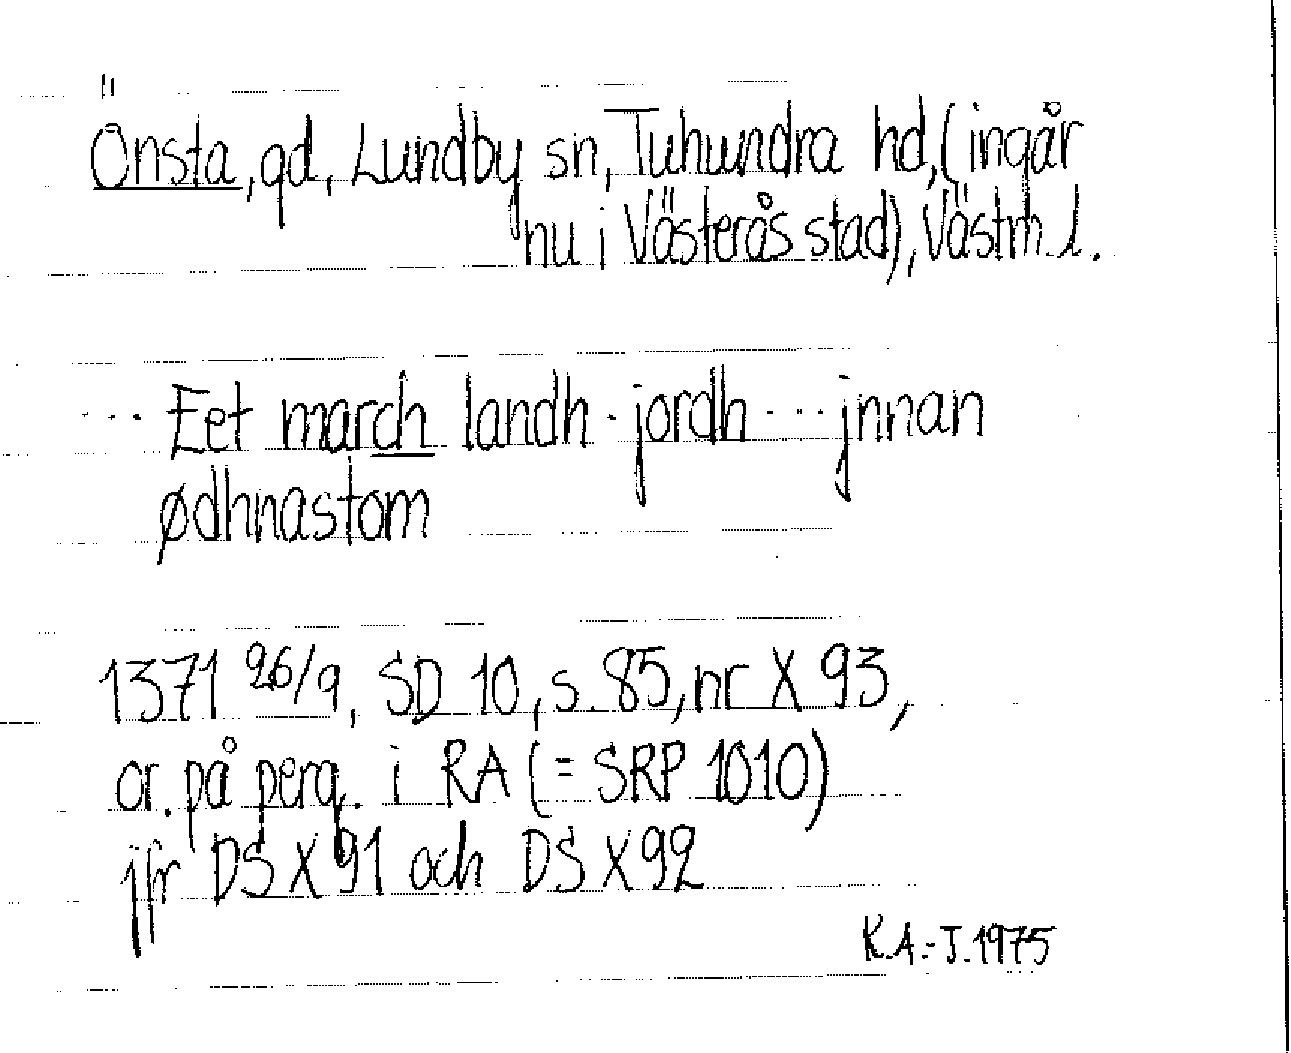 Önsta, gd, Lundby sn, Tuhundra hd, (ingår
nu i Västerås stad), Västm l.
... Eet march landh - jordh ... jnnan
ødhnastom
1371 26/9, SD 10, s. 85, nr X 93,
or. på perg. i RA (= SRP 1010)
jfr DS X 91 och DS X 92
K.A.-J. 1975